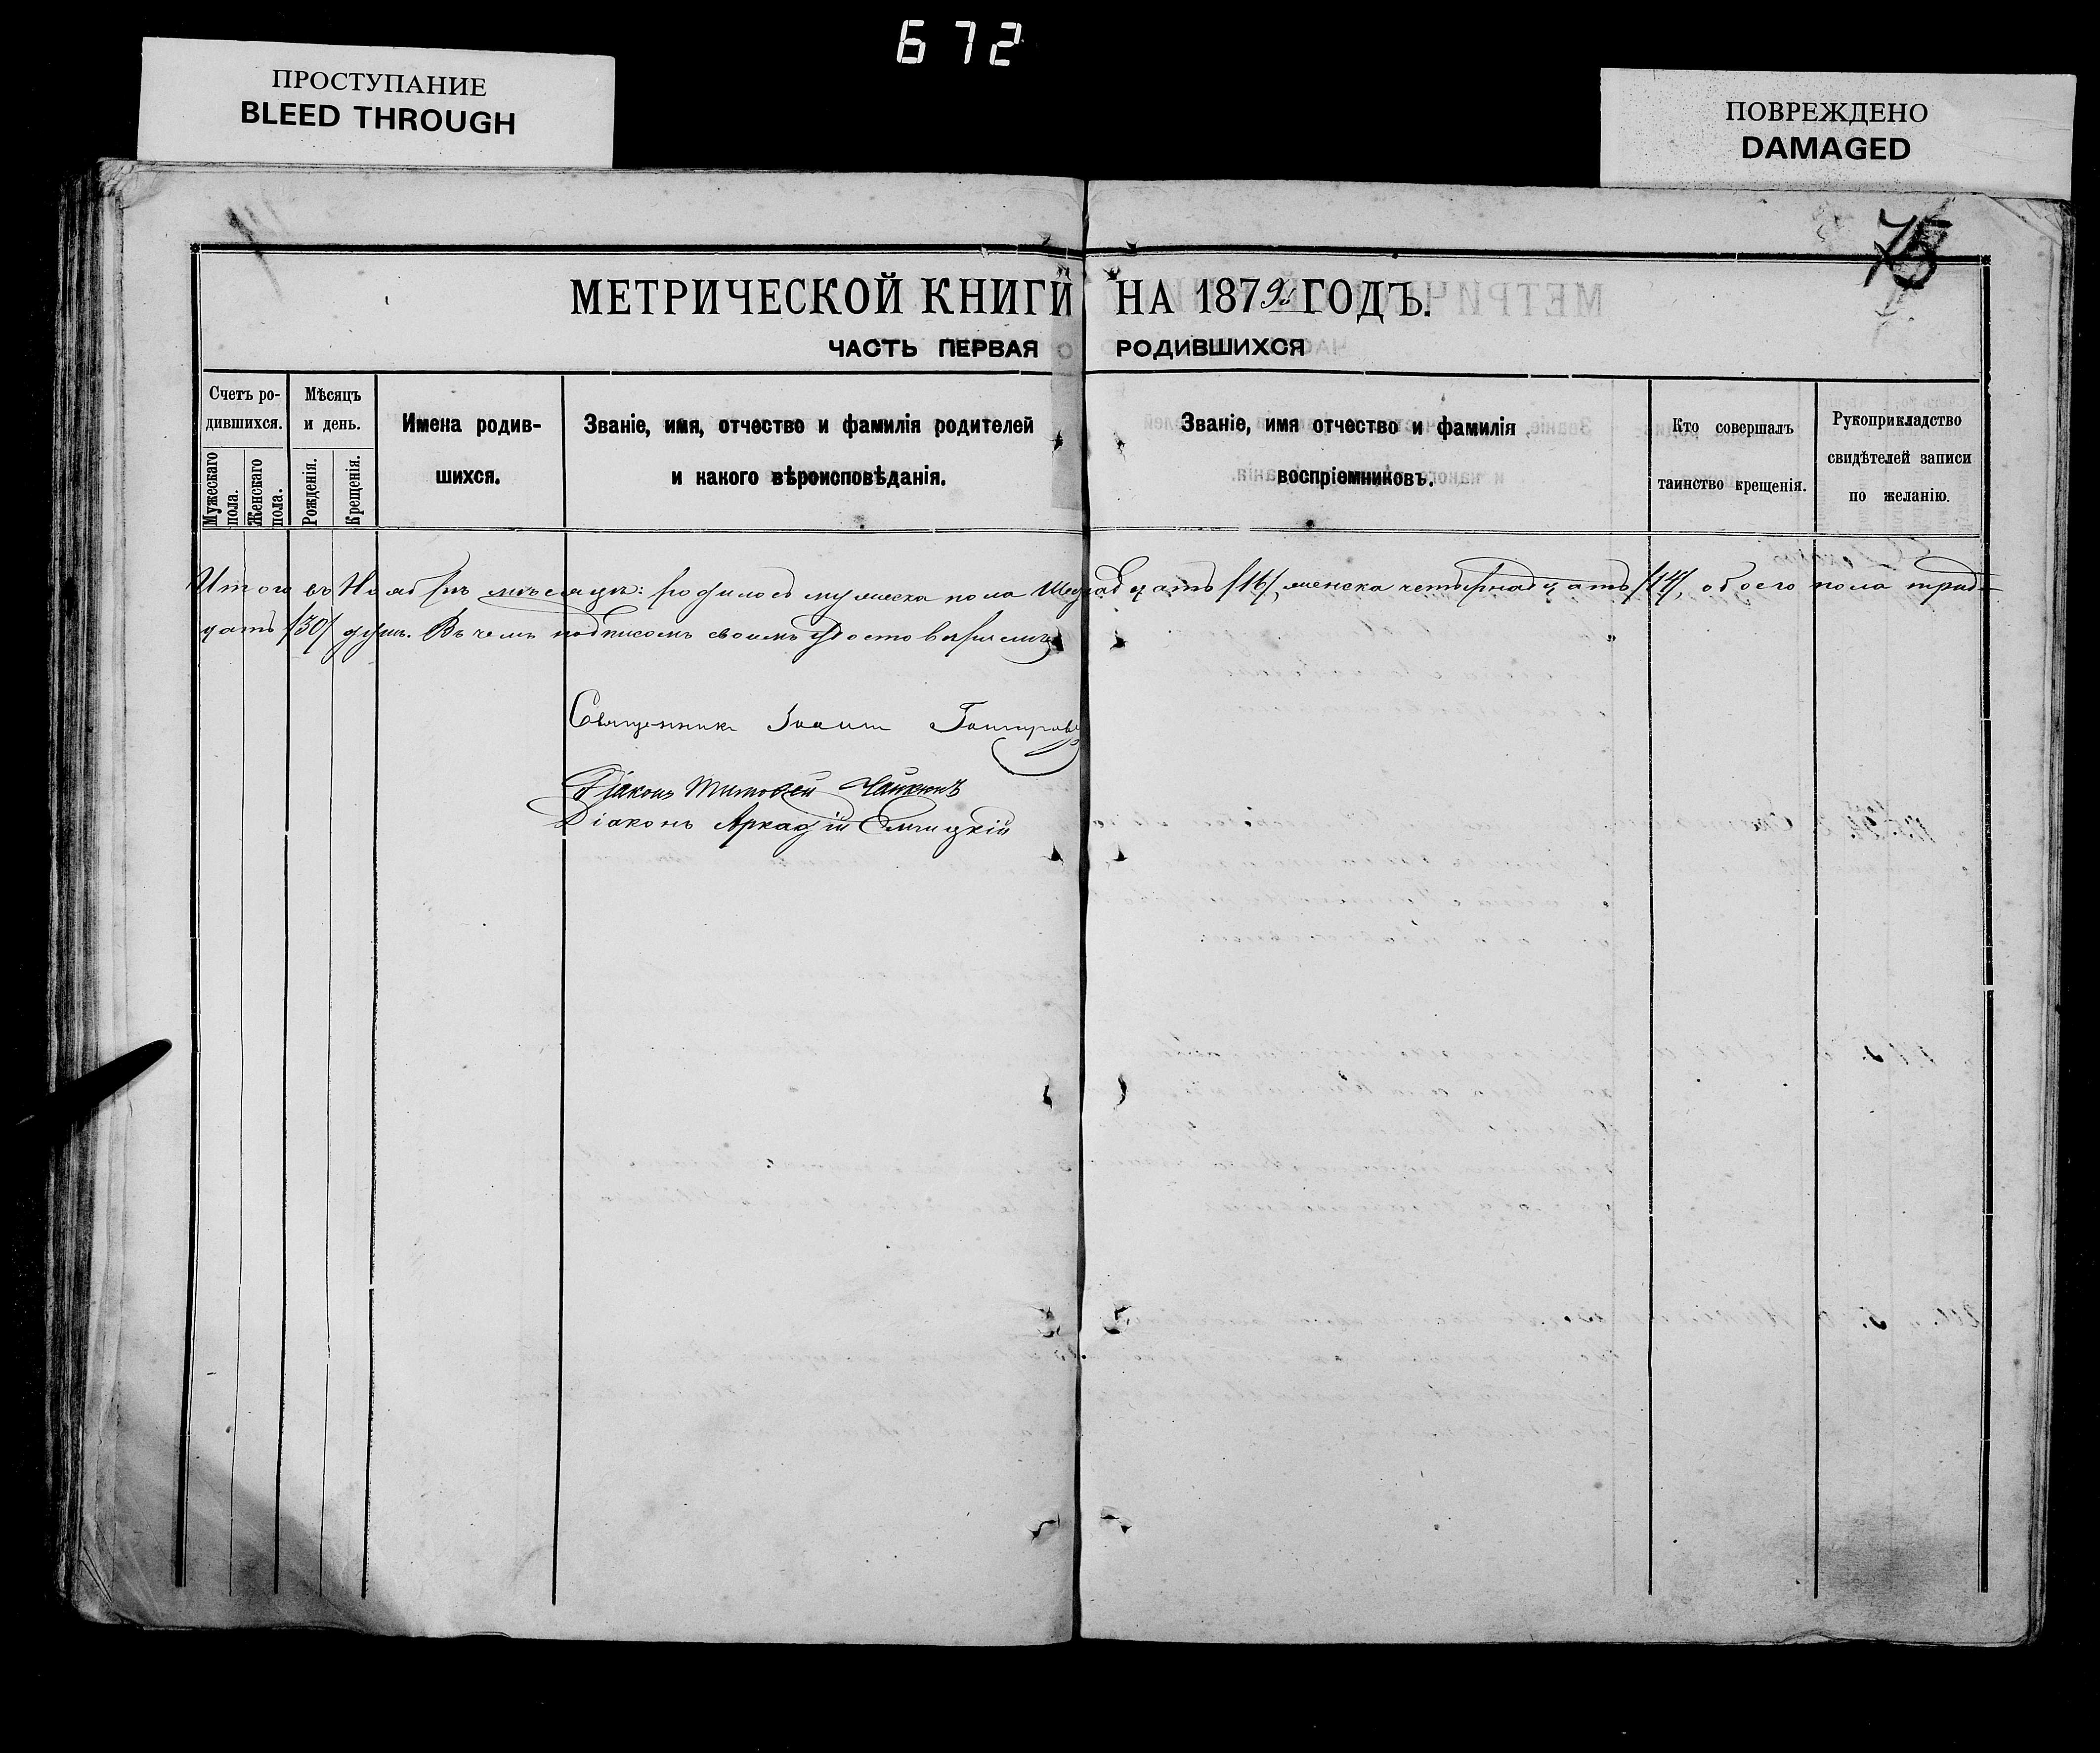 672
ПРОСТУПАНИЕ
BLEED THROUGH
ПОВРЕЖДЕНО
DAMAGED
75
МЕТРИЧЕСКОЙ КНИГИ НА 1879 ГОДЪ.
ЧАСТЬ ПЕРВАЯ О РОДИВШИХСЯ
Счетъ ро-
дившихся.
Мужескаго
пола.
Женскаго
пола.
Мѣсяцъ
и день.
Рожденія.
Крещенія.
Имена родив-
шихся.
Званіе, имя, отчество и фамилія родителей
и какого вѣроисповѣданія.
Званіе, имя отчество и фамилія
воспріемниковъ.
Кто совершалъ
таинство крещенія.
Рукоприкладство
свидѣтелей записи
по желанію.
Итого въ Ноябрѣ мѣсяцѣ: родилось мужеска пола Шестнадцать /16/, женска четырнадцать /14/, обоего пола трид-
цать /30/ душъ. Въ чемъ подписомъ своимъ удостовѣряемъ
Священникъ Іоаннъ
Діаконъ Тимофей
Діаконъ Аркадій